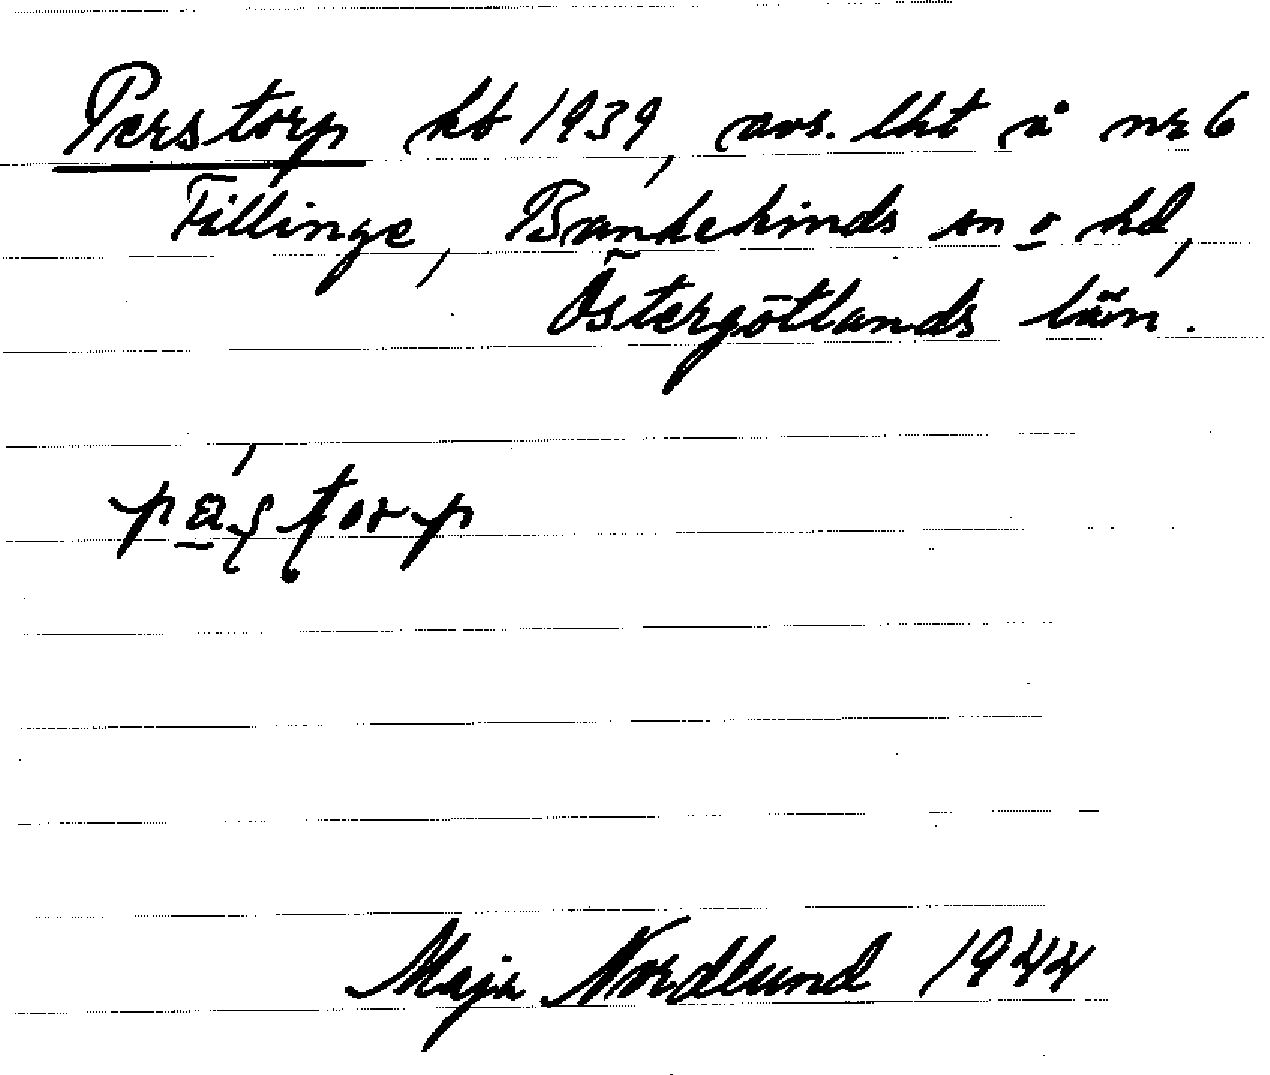 Perstorp kb 1939, avs. lht å nr 6
Fillinge, Bankekinds sn o hd,
Östergötlands län.
Maja Nordlund 1944